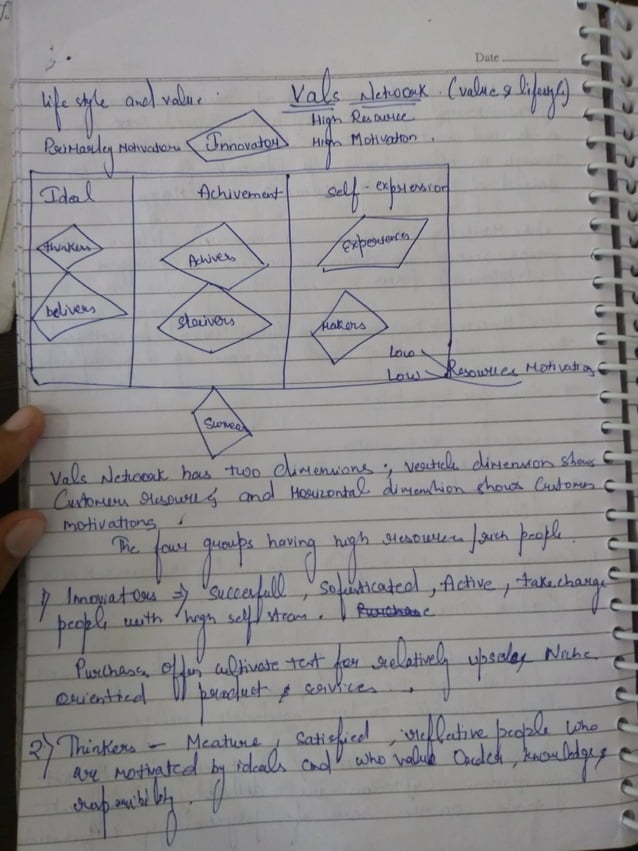 Date
life style and value. Vals Network. (value & lifestyle)
High Resource
Primarley Motivation Innovators High Motivation.
Ideal Achivement self-expression
thinkers Achivers Experiences
belivers Strivers Makers
Low
Low Resources Motivation
Survear
Vals Network has two dimensions; verticle dimension shows
Customers resources and Horizontal dimenshion shows Customer
motivations.
The four groups having high resources / rich people.
1) Innoviators => succesfull, sofisticated, Active, take charge
people with high self steam. Purchase
Purchases often cultivate test for relatively upscale Niche
orientied product & services.
2) Thinkers - Meature, satisfied, reflative people who
are motivated by ideals and who value Order, knowledge,
responsibility.